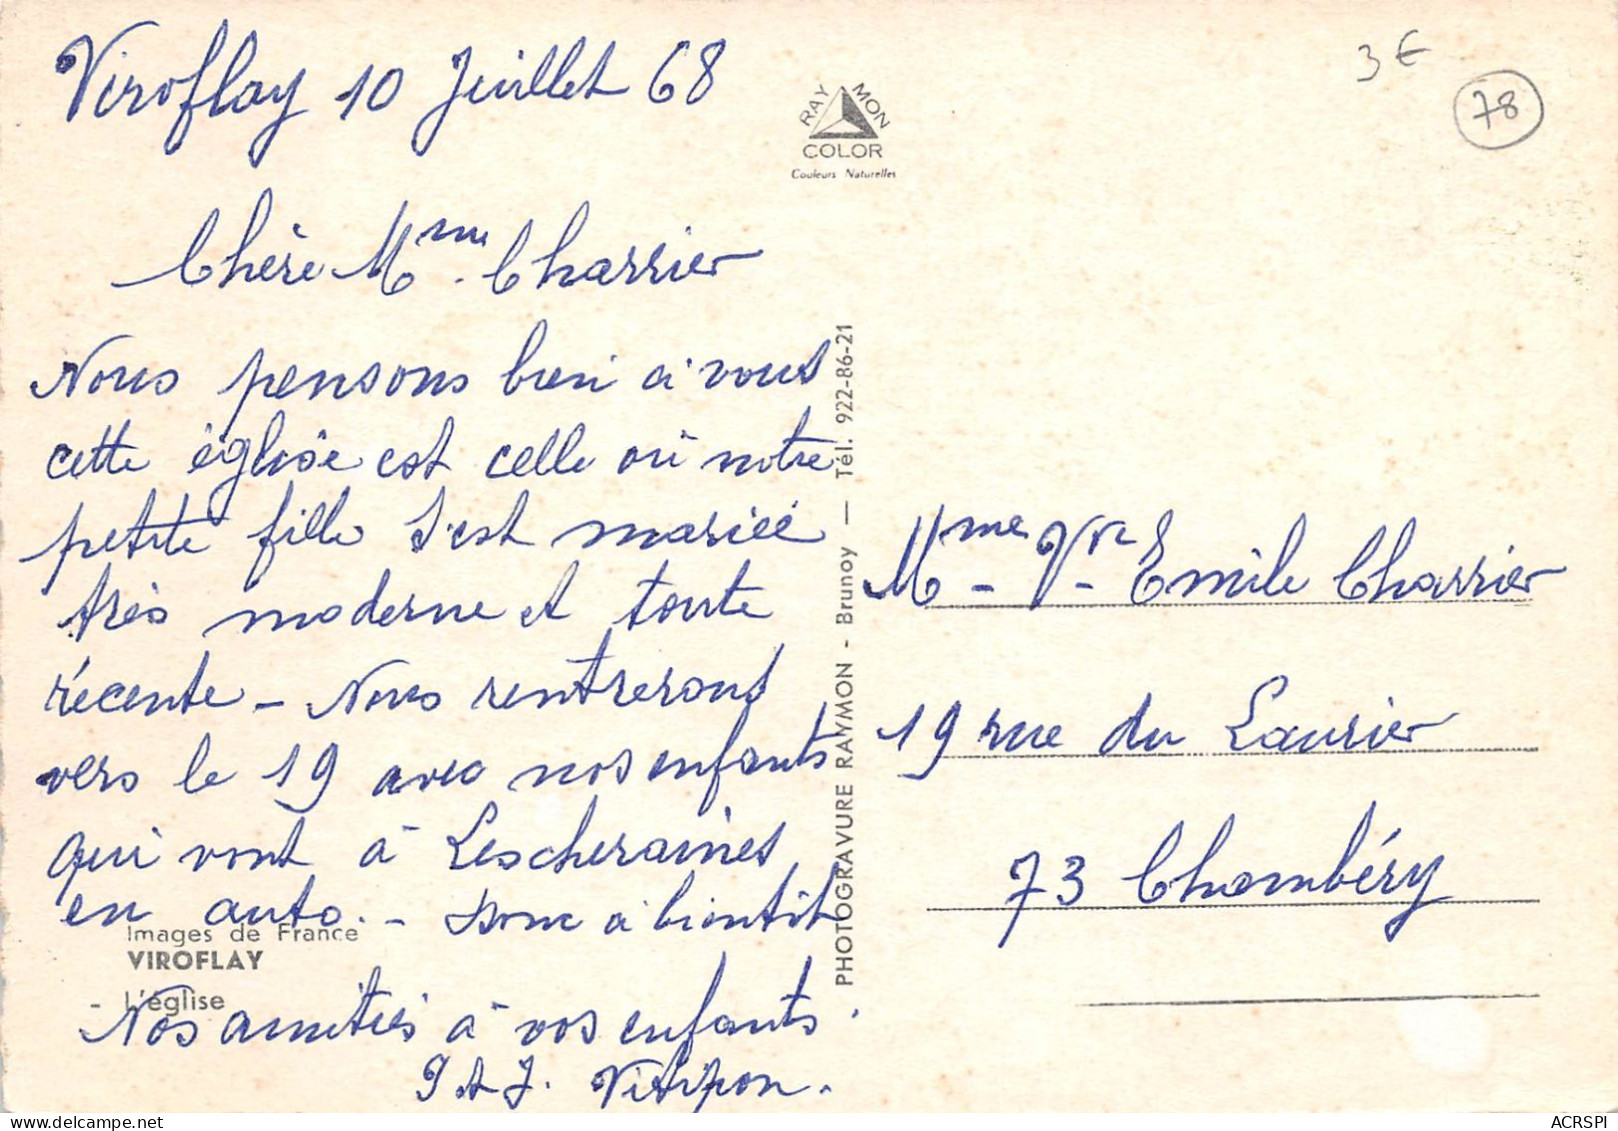 Viroflay 10 Juillet 68
3 €
78
RAYMON
COLOR
Couleurs Naturelles
Chère Mme. Charrier
Nous pensons bien à vous
cette église est celle où notre
petite fille s'est mariée
très moderne et toute
récente - Nous rentrerons
vers le 19 avec nos enfants
qui vont à Lescheraines
en auto. - Donc à bientôt
Nos amitiés à vos enfants.
J et J.
Images de France
VIROFLAY
- L'église
PHOTOGRAVURE RAYMON - Brunoy — Tél. 922-86-21
Mme Vve Emile Charrier
19 rue du Laurier
73 Chambéry
ACRSPI